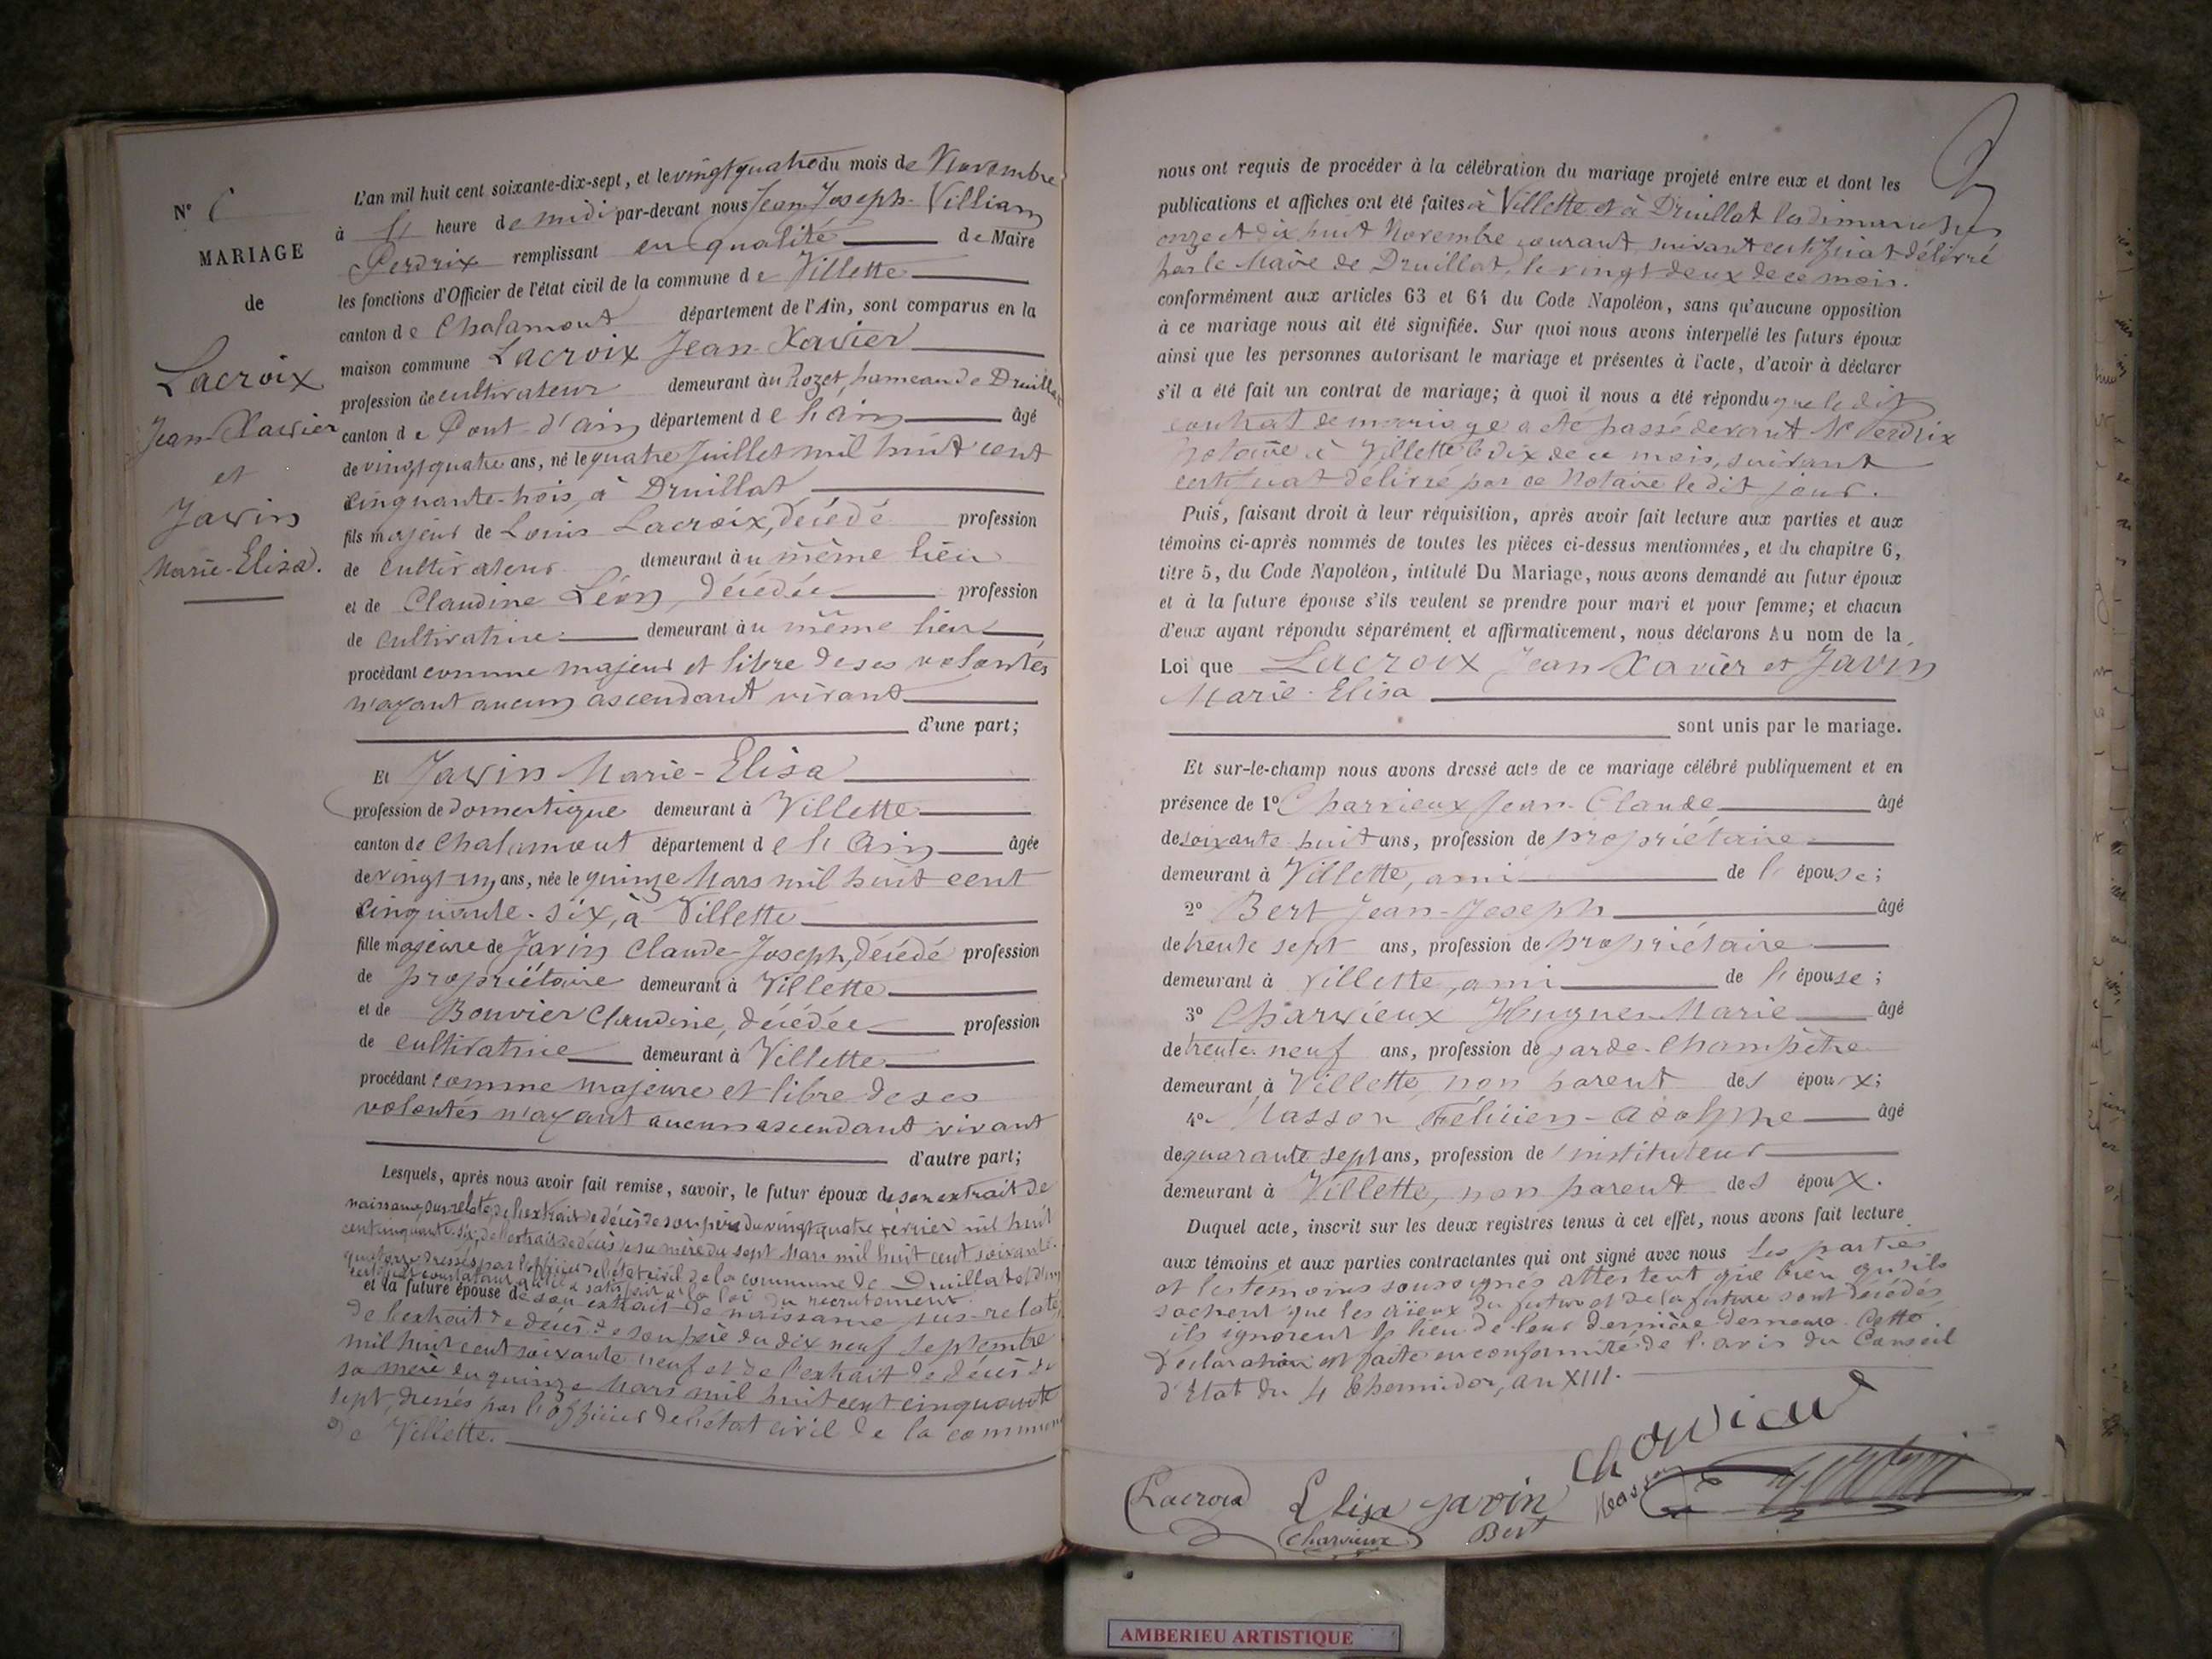 N° 6
MARIAGE
de
Lacroix
Jean Xavier
et
Javin
Marie-Elisa.
L'an mil huit cent soixante-dix-sept, et le vingt quatre du mois de Novembre
à 4 heure de midi par-devant nous Jean-Joseph-Villiam
Perdrix remplissant en qualité de Maire
les fonctions d'Officier de l'état civil de la commune de Villette
canton de Chalamont département de l'Ain, sont comparus en la
maison commune Lacroix Jean-Xavier
profession de cultivateur demeurant au Rozet, hameau de Druillat
canton de Pont-d'ain département de l'ain âgé
de vingt quatre ans, né le quatre Juillet mil huit cent
cinquante-trois, à Druillat
fils majeur de Louis Lacroix, décédé profession
de cultivateur demeurant au même lieu
et de Claudine Léon, décédée profession
de cultivatrice demeurant au même lieu
procédant comme majeur et libre de ses volontés
n'ayant aucun ascendant vivant
d'une part;
Et Javin Marie-Elisa
profession de domestique demeurant à Villette
canton de Chalamont département de l'Ain âgée
de vingt un ans, née le quinze Mars mil huit cent
cinquante-six, à Villette
fille majeure de Javin Claude-Joseph, décédé profession
de propriétaire demeurant à Villette
et de Bouvier Claudine, décédée profession
de cultivatrice demeurant à Villette
procédant comme majeure et libre de ses
volontés n'ayant aucun ascendant vivant
d'autre part;
Lesquels, après nous avoir fait remise, savoir, le futur époux de son extrait de
naissance sus relaté, de l'extrait de décès de son père du vingt quatre février mil huit
cent cinquante-six, de l'extrait de décès de sa mère du sept Mars mil huit cent soixante-
quatorze dressés par l'officier de l'état civil de la commune de Druillat et d'un
certificat constatant qu'il a satisfait à la loi du recrutement.
et la future épouse de son extrait de naissance sus-relaté,
de l'extrait de décès de son père du dix neuf Septembre
mil huit cent soixante neuf et de l'extrait de décès de
sa mère du quinze Mars mil huit cent cinquante
sept, dressés par l'officier de l'état civil de la commune
de Villette.
nous ont requis de procéder à la célébration du mariage projeté entre eux et dont les
publications et affiches ont été faites à Villette et à Druillat les dimanches
onze et dix huit Novembre courant, suivant certificat délivré
par le Maire de Druillat, le vingt deux de ce mois.
conformément aux articles 63 et 64 du Code Napoléon, sans qu'aucune opposition
à ce mariage nous ait été signifiée. Sur quoi nous avons interpellé les futurs époux
ainsi que les personnes autorisant le mariage et présentes à l'acte, d'avoir à déclarer
s'il a été fait un contrat de mariage; à quoi il nous a été répondu que le dit
contrat de mariage a été passé devant Me Perdrix
Notaire à Villette le dix de ce mois, suivant
certificat délivré par ce Notaire le dit jour.
Puis, faisant droit à leur réquisition, après avoir fait lecture aux parties et aux
témoins ci-après nommés de toutes les pièces ci-dessus mentionnées, et du chapitre 6,
titre 5, du Code Napoléon, intitulé Du Mariage, nous avons demandé au futur époux
et à la future épouse s'ils veulent se prendre pour mari et pour femme; et chacun
d'eux ayant répondu séparément et affirmativement, nous déclarons Au nom de la
Loi que Lacroix Jean Xavier et Javin
Marie-Elisa
sont unis par le mariage.
Et sur-le-champ nous avons dressé acte de ce mariage célébré publiquement et en
présence de 1° Charvieux Jean-Claude âgé
de soixante huit ans, profession de propriétaire
demeurant à Villette, ami de l'épouse;
2° Bert Jean-Joseph âgé
de trente sept ans, profession de propriétaire
demeurant à Villette, ami de l'épouse;
3° Charvieux Hugues Marie âgé
de trente neuf ans, profession de garde-champêtre
demeurant à Villette, non parent des époux;
4° Masson Félicien-Adolphe âgé
de quarante sept ans, profession de instituteur
demeurant à Villette, non parent des époux.
Duquel acte, inscrit sur les deux registres tenus à cet effet, nous avons fait lecture
aux témoins et aux parties contractantes qui ont signé avec nous Les parties
et les témoins soussignés attestent que bien qu'ils
sachent que les aïeux du futur et de la future sont décédés
ils ignorent le lieu de leur dernière demeure. Cette
déclaration est faite en conformité de l'avis du Conseil
d'Etat du 4 thermidor, an XIII.
Charvieux
Lacroix Elisa Javin Masson
Charvieux Bert
AMBERIEU ARTISTIQUE